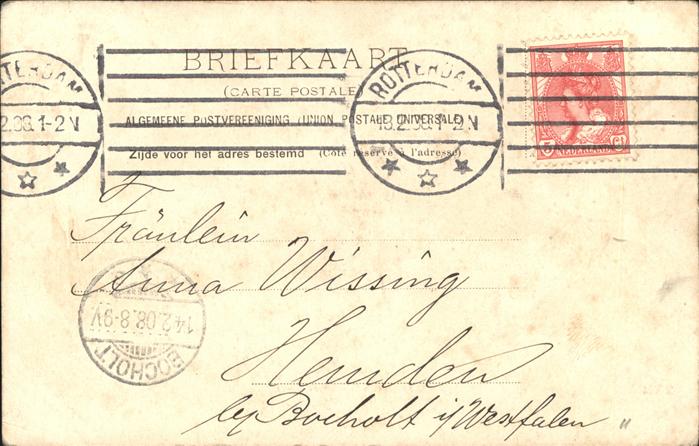 BRIEFKAART
(CARTE POSTALE)
ALGEMEENE POSTVEREENIGING (UNION POSTALE UNIVERSALE)
Zijde voor het adres bestemd (Côté réservé à l'adresse)
ROTTERDAM
1-2 N
ROTTERDAM
1-2 N
5 NEDERLAND Ct
Fräulein
Anna Wissing
Hemden
by Bocholt i/Westfalen "
14.2.08.8-9V
BOCHOLT